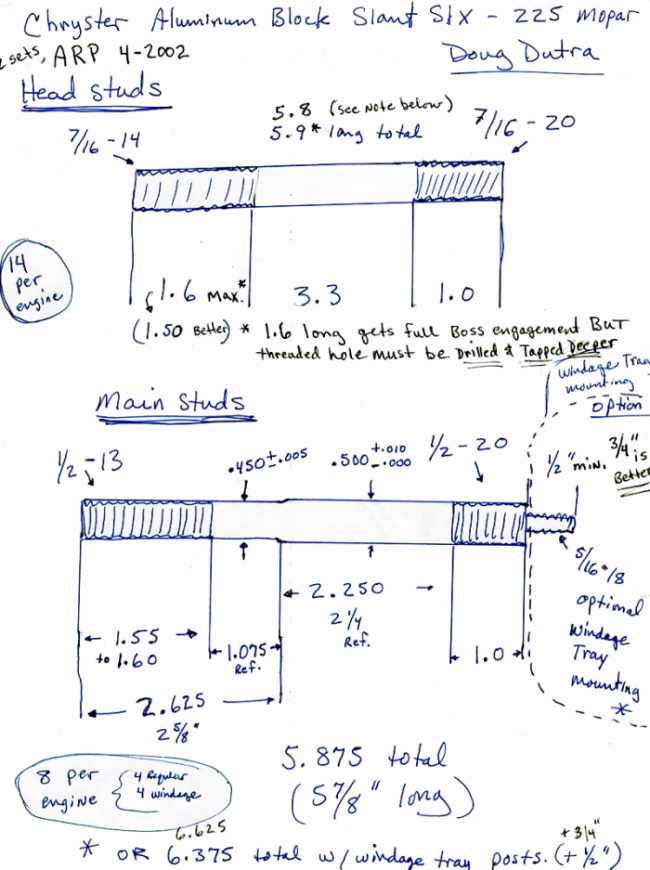 Chryster Aluminum Block Slant Six - 225 Mopar
2 sets, ARP 4-2002
Doug Dutra
Head Studs
5.8 (see note below)
5.9* long total
7/16-14
7/16-20
14
per
engine
1.6 max.*
3.3
1.0
(1.50 Better)
* 1.6 long gets full Boss engagement BUT
threaded hole must be Drilled & Tapped Deeper
Main Studs
windage Tray
mounting
option
1/2-13
.450 ±.005
.500 +.010 -.000
1/2-20
1/2" min.
3/4" is
Better
5/16-18
optional
windage
Tray
mounting
*
2.250
2 1/4
Ref.
1.55
to 1.60
1.075
Ref.
1.0
2.625
2 5/8"
8 per
engine
4 Regular
4 windage
5.875 total
(5 7/8" long)
6.625
+ 3/4"
* OR 6.375 total w/ windage tray posts. (+ 1/2")